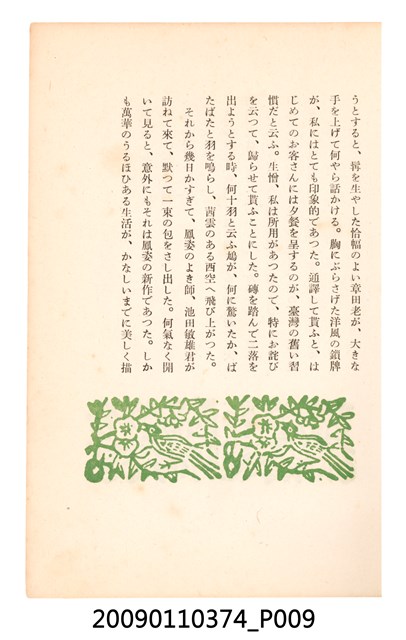 うとすると、髯を生やした恰幅のよい章田老が、大きな
手を上げて何やら話かける。胸にぶらさげた洋風の鎖牌
が、私にはとても印象的であつた。通譯して貰ふと、は
じめてのお客さんには夕餐を呈するのが、臺灣の舊い習
慣だと云ふ。生憎、私は所用があつたので、特にお詫び
を云つて、歸らせて貰ふことにした。磚を踏んで二落を
出ようとする時、何十羽と云ふ鳩が、何に驚いたか、ば
たばたと羽を鳴らし、茜雲のある西空へ飛び上がつた。
それから幾日かすぎて、鳳姿のよき師、池田敏雄君が
訪ねて來て、默つて一束の包をさし出した。何氣なく開
いて見ると、意外にもそれは鳳姿の新作であつた。しか
も萬華のうるほひある生活が、かなしいまでに美しく描
20090110374_P009